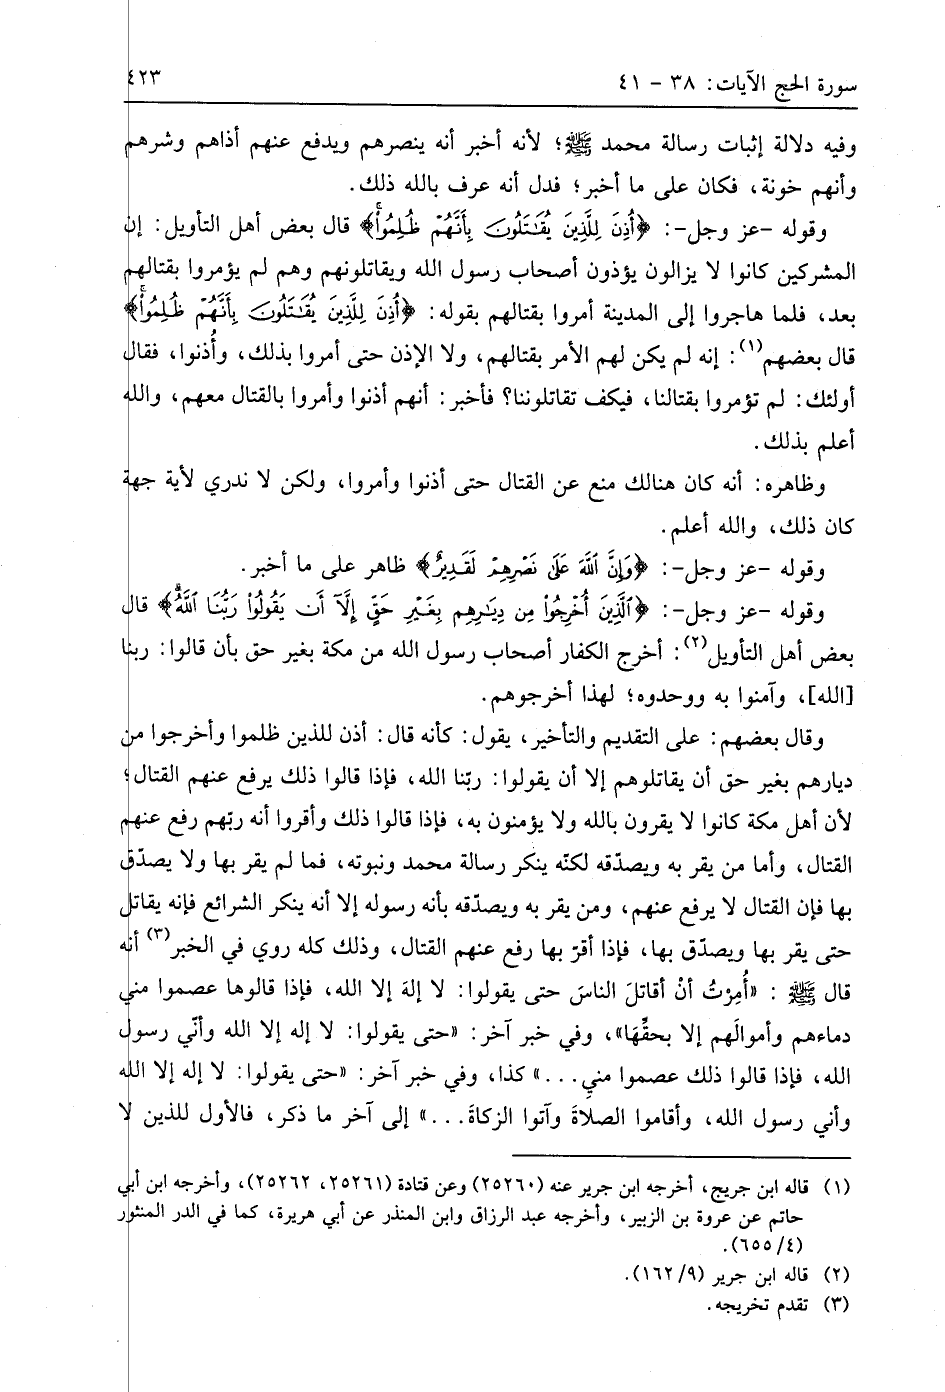 سورة الحج الآيات: ٣٨ - ٤١ ٤٢٣
وفيه دلالة إثبات رسالة محمد ﷺ؛ لأنه أخبر أنه ينصرهم ويدفع عنهم أذاهم وشرهم
وأنهم خونة، فكان على ما أخبر؛ فدل أنه عرف بالله ذلك.
وقوله -عز وجل-: ﴿أُذِنَ لِلَّذِينَ يُقَٰتَلُونَ بِأَنَّهُمْ ظُلِمُوا۟﴾ قال بعض أهل التأويل: إن
المشركين كانوا لا يزالون يؤذون أصحاب رسول الله ويقاتلونهم وهم لم يؤمروا بقتالهم
بعد، فلما هاجروا إلى المدينة أمروا بقتالهم بقوله: ﴿أُذِنَ لِلَّذِينَ يُقَٰتَلُونَ بِأَنَّهُمْ ظُلِمُوا۟﴾
قال بعضهم(١): إنه لم يكن لهم الأمر بقتالهم، ولا الإذن حتى أمروا بذلك، وأُذنوا، فقال
أولئك: لم تؤمروا بقتالنا، فيكف تقاتلوننا؟ فأخبر: أنهم أذنوا وأمروا بالقتال معهم، والله
أعلم بذلك.
وظاهره: أنه كان هنالك منع عن القتال حتى أذنوا وأمروا، ولكن لا ندري لأية جهة
كان ذلك، والله أعلم.
وقوله -عز وجل-: ﴿وَإِنَّ ٱللَّهَ عَلَىٰ نَصْرِهِمْ لَقَدِيرٌ﴾ ظاهر على ما أخبر.
وقوله -عز وجل-: ﴿ٱلَّذِينَ أُخْرِجُوا۟ مِن دِيَٰرِهِم بِغَيْرِ حَقٍّ إِلَّآ أَن يَقُولُوا۟ رَبُّنَا ٱللَّهُ﴾ قال
بعض أهل التأويل(٢): أخرج الكفار أصحاب رسول الله من مكة بغير حق بأن قالوا: ربنا
[الله]، وآمنوا به ووحدوه؛ لهذا أخرجوهم.
وقال بعضهم: على التقديم والتأخير، يقول: كأنه قال: أذن للذين ظلموا وأخرجوا من
ديارهم بغير حق أن يقاتلوهم إلا أن يقولوا: ربّنا الله، فإذا قالوا ذلك يرفع عنهم القتال؛
لأن أهل مكة كانوا لا يقرون بالله ولا يؤمنون به، فإذا قالوا ذلك وأقروا أنه ربّهم رفع عنهم
القتال، وأما من يقر به ويصدّقه لكنّه ينكر رسالة محمد ونبوته، فما لم يقر بها ولا يصدّق
بها فإن القتال لا يرفع عنهم، ومن يقر به ويصدّقه بأنه رسوله إلا أنه ينكر الشرائع فإنه يقاتل
حتى يقر بها ويصدّق بها، فإذا أقرّ بها رفع عنهم القتال، وذلك كله روي في الخبر(٣) أنه
قال ﷺ: «أُمِرْتُ أنْ أقاتلَ الناسَ حتى يقولوا: لا إلهَ إلا الله، فإذا قالوها عصموا مني
دماءهم وأموالَهم إلا بحقِّهَا»، وفي خبر آخر: «حتى يقولوا: لا إله إلا الله وأنّي رسول
الله، فإذا قالوا ذلك عصموا مني...» كذا، وفي خبر آخر: «حتى يقولوا: لا إله إلا الله
وأني رسول الله، وأقاموا الصلاةَ وآتوا الزكاةَ...» إلى آخر ما ذكر، فالأول للذين لا
(١) قاله ابن جريج، أخرجه ابن جرير عنه (٢٥٢٦٠) وعن قتادة (٢٥٢٦١، ٢٥٢٦٢)، وأخرجه ابن أبي
حاتم عن عروة بن الزبير، وأخرجه عبد الرزاق وابن المنذر عن أبي هريرة، كما في الدر المنثور
(٤/٦٥٥).
(٢) قاله ابن جرير (٩/١٦٢).
(٣) تقدم تخريجه.